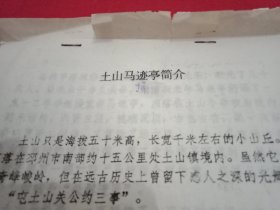 土山马迹亭简介
土山只是海拔五十米高，长宽千米左右的小山丘。
落在邳州市南部约十五公里处土山镇境内。虽然它
峻岭，但在远古历史上曾留下惑人之深的光
“屯土山关公约三事”。